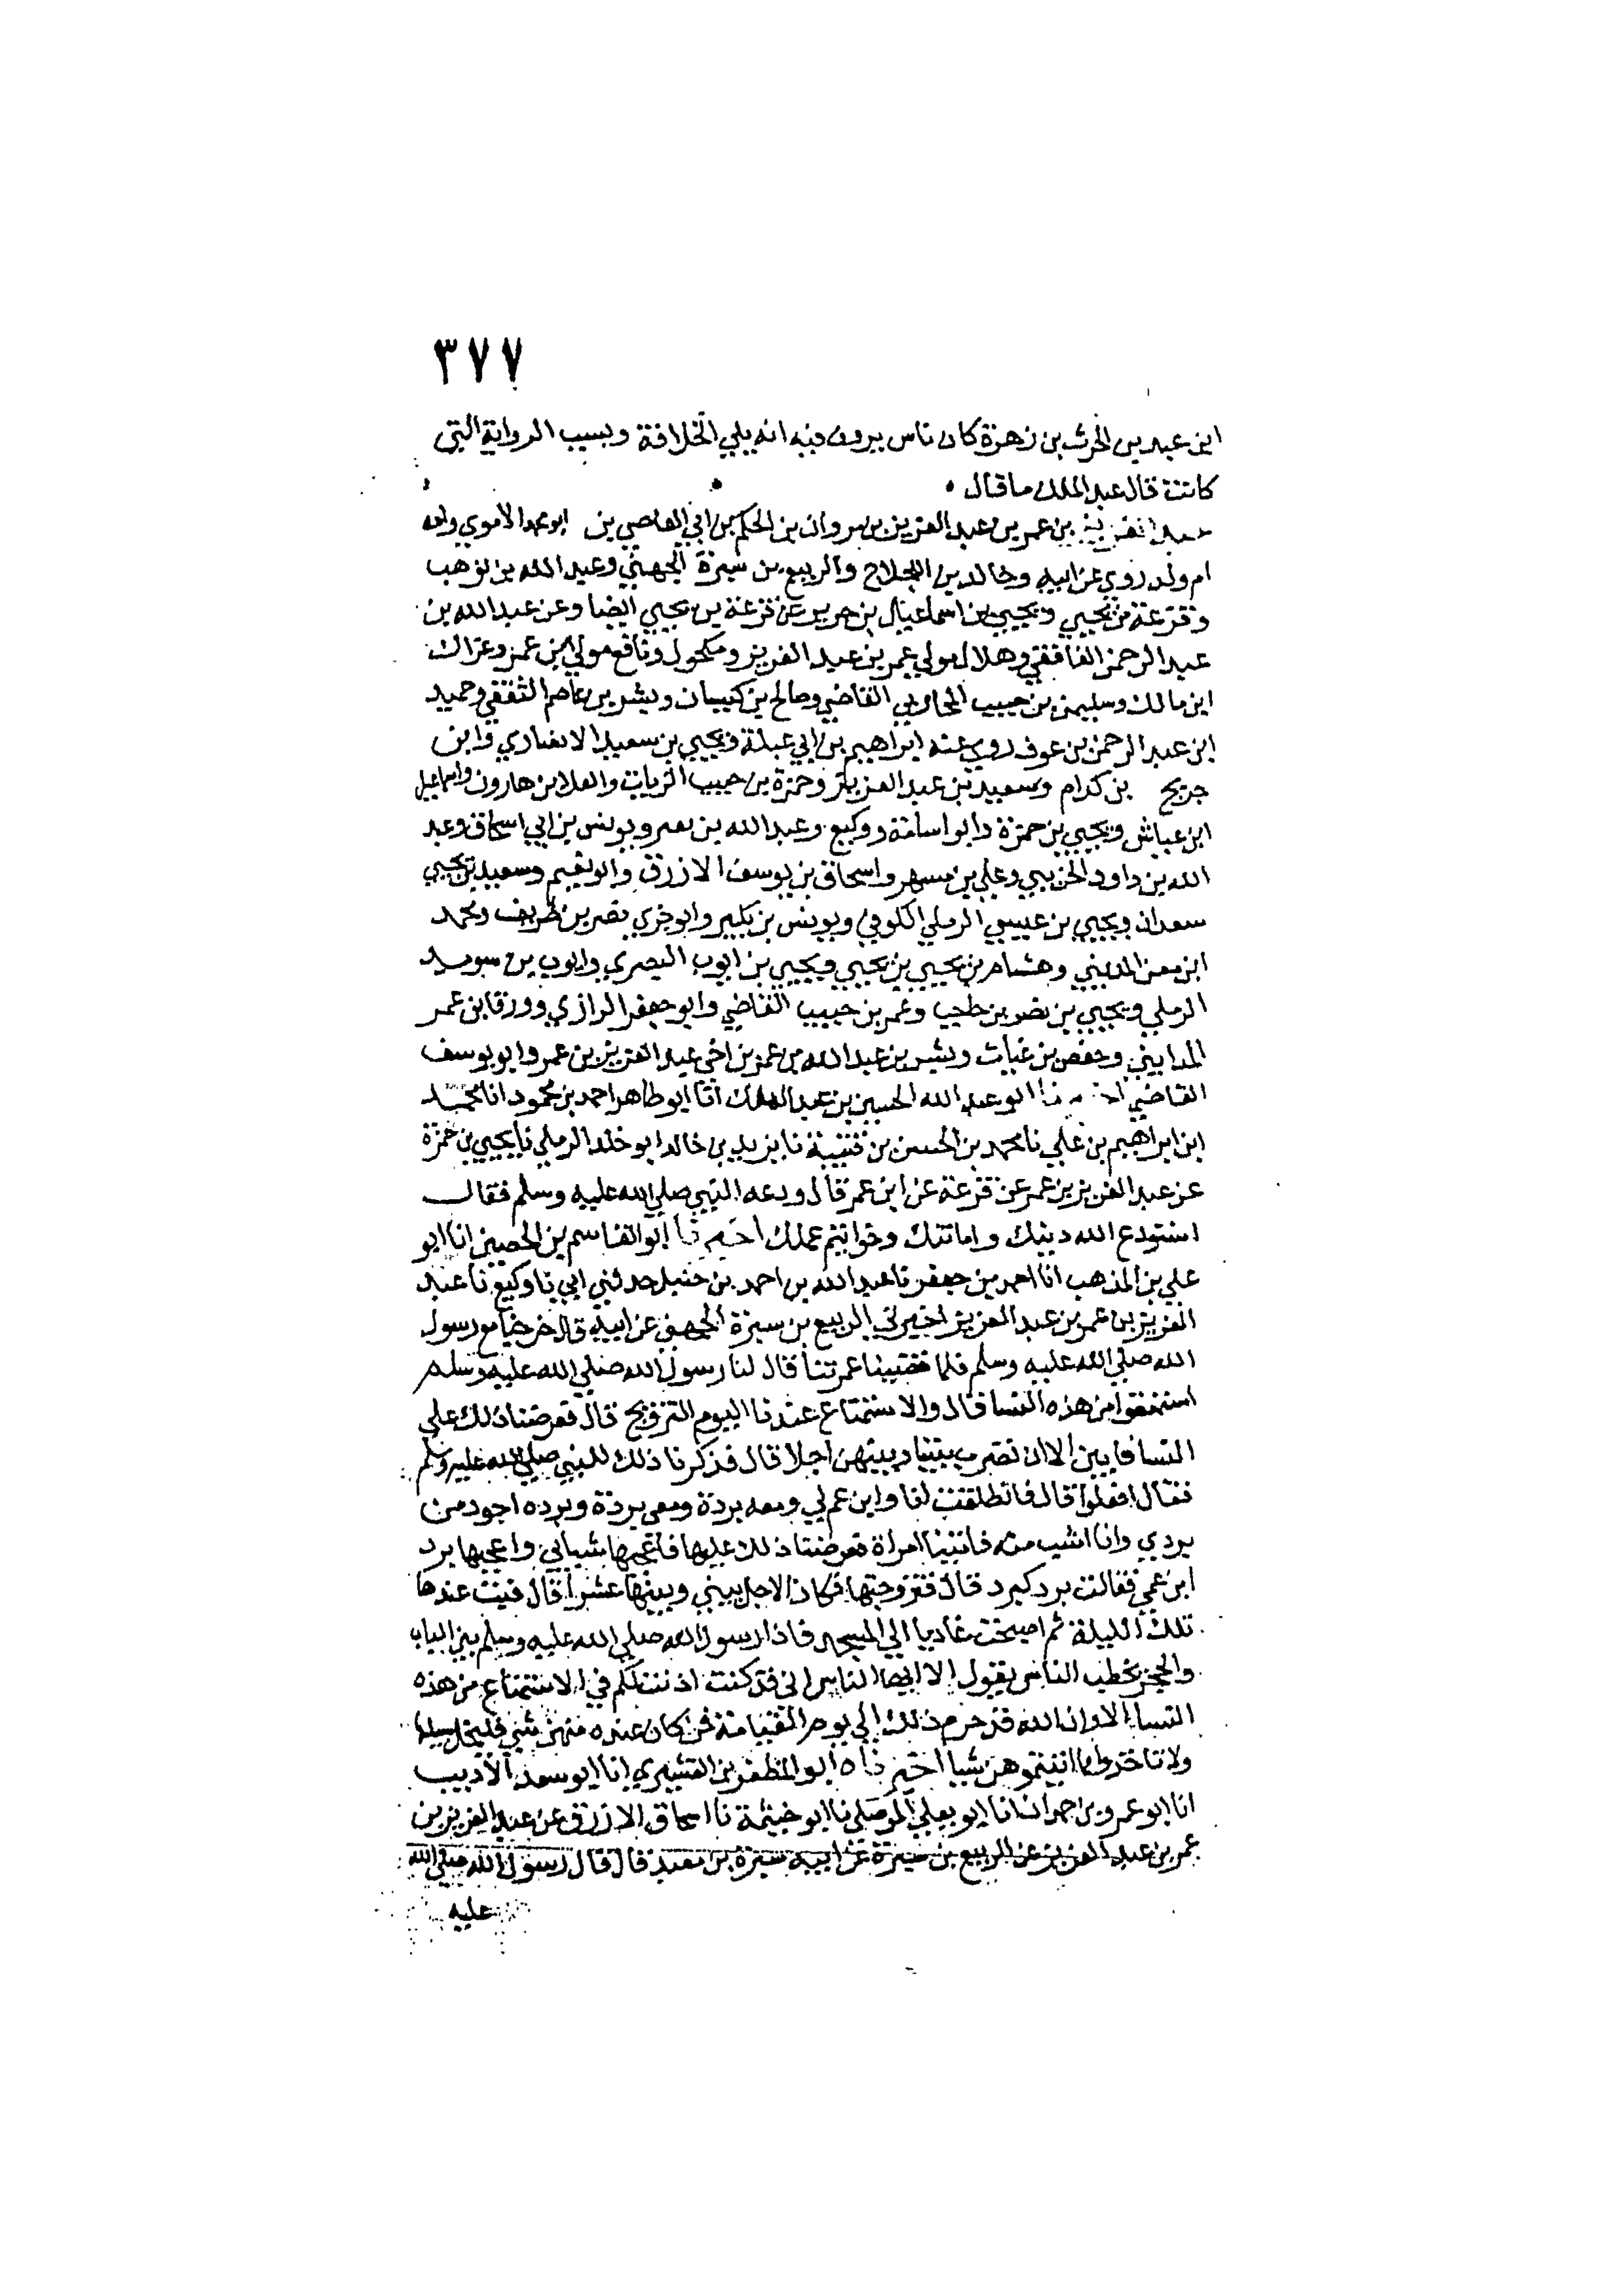 ٣٧٧
ابن عبد بن الحرث بن زهرة كان ناس يرون فيه انه يلي الخلافة وبسبب الرواية التي
كانت قال عبد الملك ما قال
عبد العزيز بن عمر بن عبد العزيز بن مروان بن الحكم بن ابي العاصي بن ابو محمد الاموي وامه
ام ولد روي عن ابيه وخالد بن اللجلاج والربيع بن سبرة الجهني وعبد الله بن موهب
وقزعة بن يحيي ويحيي بن اسماعيل بن جرير عن قزعة بن يحيي ايضا وعن عبد الله بن
عبد الرحمن الغافقي وهلال مولي عمر بن عبد العزيز ومكحول ونافع مولي ابن عمر وعراك
ابن مالك وسليمن بن حبيب المحاربي القاضي وصالح بن كيسان وبشر بن عاصم الثقفي وحميد
ابن عبد الرحمن بن عوف روي عنه ابراهيم بن ابي عبلة ويحيي بن سعيد الانصاري وابن
جريج بن كدام وسعيد بن عبد العزيز وحمزة بن حبيب الزيات والعلا بن هارون واسماعيل
ابن عياش ويحيي بن حمزة وابو اسامة ووكيع وعبد الله بن نمير ويونس بن ابي اسحاق وعبد
الله بن داود الخريبي وعلي بن مسهر واسحاق بن يوسف الازرق وابو نعيم وسعيد بن يحيي
سعدان ويحيي بن عيسي الرملي الكوفي ويونس بن بكير وابو جزي نصر بن طريف ومحمد
ابن معن المديني وهشام بن يحيي بن يحيي ويحيي بن ايوب البصري وايوب بن سويد
الرملي ويحيي بن نصر بن حاجب وعمر بن حبيب القاضي وابو جعفر الرازي وورقا بن عمر
المدايني وحفص بن غياث وبشر بن عبد الله بن عمر بن اخي عبد العزيز بن عمر وابو يوسف
القاضي اخبرنا ابو عبد الله الحسين بن عبد الملك انا ابو طاهر احمد بن محمود انا محمد
ابن ابراهيم بن علي نا محمد بن الحسن بن قتيبة نا يزيد بن خالد ابو خلد الرملي نا يحيي بن حمزة
عن عبد العزيز بن عمر عن قزعة عن ابن عمر قال ودعه النبي صلي الله عليه وسلم فقال
استودع الله دينك وامانتك وخواتيم عملك اخبرنا ابو القاسم بن الحصين انا ابو
علي بن المذهب انا احمد بن جعفر نا عبد الله بن احمد بن حنبل حدثني ابي نا وكيع نا عبد
العزيز بن عمر بن عبد العزيز اخبرني الربيع بن سبرة الجهني عن ابيه قال خرجنا مع رسول
الله صلي الله عليه وسلم فلما قضينا عمرتنا قال لنا رسول الله صلي الله عليه وسلم
استمتعوا من هذه النسا قال والاستمتاع عندنا اليوم التزويج قال فعرضنا ذلك علي
النسا فابين الا ان نضرب بيننا وبينهن اجلا قال فذكرنا ذلك للنبي صلي الله عليه وسلم
فقال افعلوا قال فانطلقت انا وابن عم لي ومعه بردة ومعي بردة وبرده اجود من
بردي وانا اشب منه فاتينا امراة فعرضنا ذلك عليها فاعجبها شبابي واعجبها برد
ابن عمي فقالت برد كبرد قال فتزوجتها فكان الاجل بيني وبينها عشرا قال فبت عندها
تلك الليلة ثم اصبحت غاديا الي المسجد فاذا رسول الله صلي الله عليه وسلم بين الباب
والحجر يخطب الناس يقول الا ايها الناس اني قد كنت اذنت لكم في الاستمتاع من هذه
النسا الا وان الله قد حرم ذلك الي يوم القيامة فمن كان عنده منهن شي فليخل سبيلها
ولا تاخذوا مما اتيتموهن شيا اخبرناه ابو المظفر بن القشيري انا ابو سعد الاديب
انا ابو عمرو بن حمدان انا ابو يعلي الموصلي نا ابو خيثمة نا اسحاق الازرق عن عبد العزيز بن
عمر بن عبد العزيز عن الربيع بن سبرة عن ابيه سبرة بن معبد قال قال رسول الله صلي الله
عليه